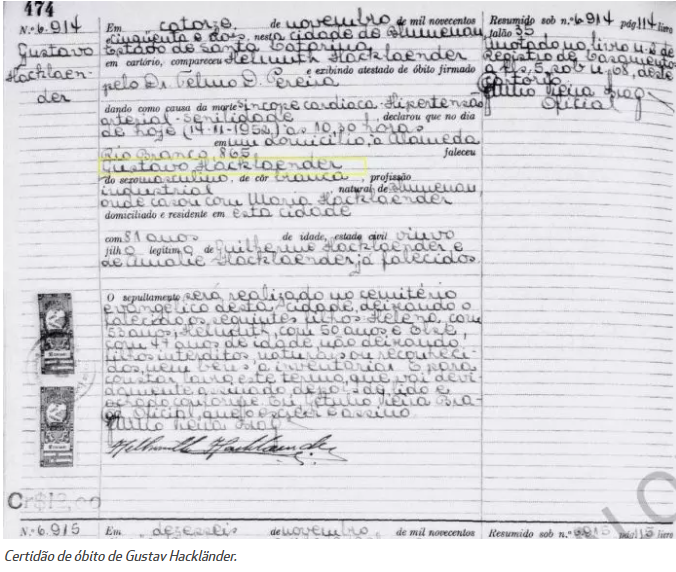 474
N.º 6.914
Gustavo
Hacklaen-
der
Em catorze de novembro de mil novecentos
e cinqüenta e dois, nesta cidade de Blumenau
Estado de Santa Catarina
em cartório, compareceu Helmuth Hacklaender
e exibindo atestado de óbito firmado
pelo Dr. Telmo D. Pereira
dando como causa da morte sincope cardiaca - Hipertensão
arterial - senilidade, declarou que no dia
de hoje (14-11-1952) às 10,30 horas
em seu domicilio, à Alameda
Rio Branco, 865, faleceu
Gustavo Hacklaender
do sexo masculino, de côr branca, profissão
industrial, natural de Blumenau,
onde casou com Maria Hacklaender
domiciliado e residente em esta cidade
com 81 anos de idade, estado civil viuvo
filho legitimo de Guilherme Hacklaender e
de Amalie Hacklaender já falecidos.
O sepultamento será realizado no cemitério
evangélico desta cidade, deixando o
falecido os seguintes filhos: Helena, com
53 anos; Helmuth, com 50 anos e Else,
com 47 anos de idade não deixando
filhos interditos, naturais ou reconheci-
dos, nem bens a inventariar. E para
constar lavro este termo, que vai devi-
damente assinado depois de lido e
achado conforme. Eu, Getulio Vieira Bra-
ga Oficial, que o escrevi e assino.
Getulio Vieira Braga
Helmuth Hacklaender
Cr$12,00
Resumido sob n.º 6.914 pág 114 livro
talão 35
Anotado no livro n.º 2 de
Registro de Casamento
a fls. 5, sob n. 68, deste
Cartorio
Getulio Vieira Braga
Oficial
N.º 6.915
Em dezesseis de novembro de mil novecentos
Resumido sob n.º 6915 pág 115 livro
Certidão de óbito de Gustav Hackländer.